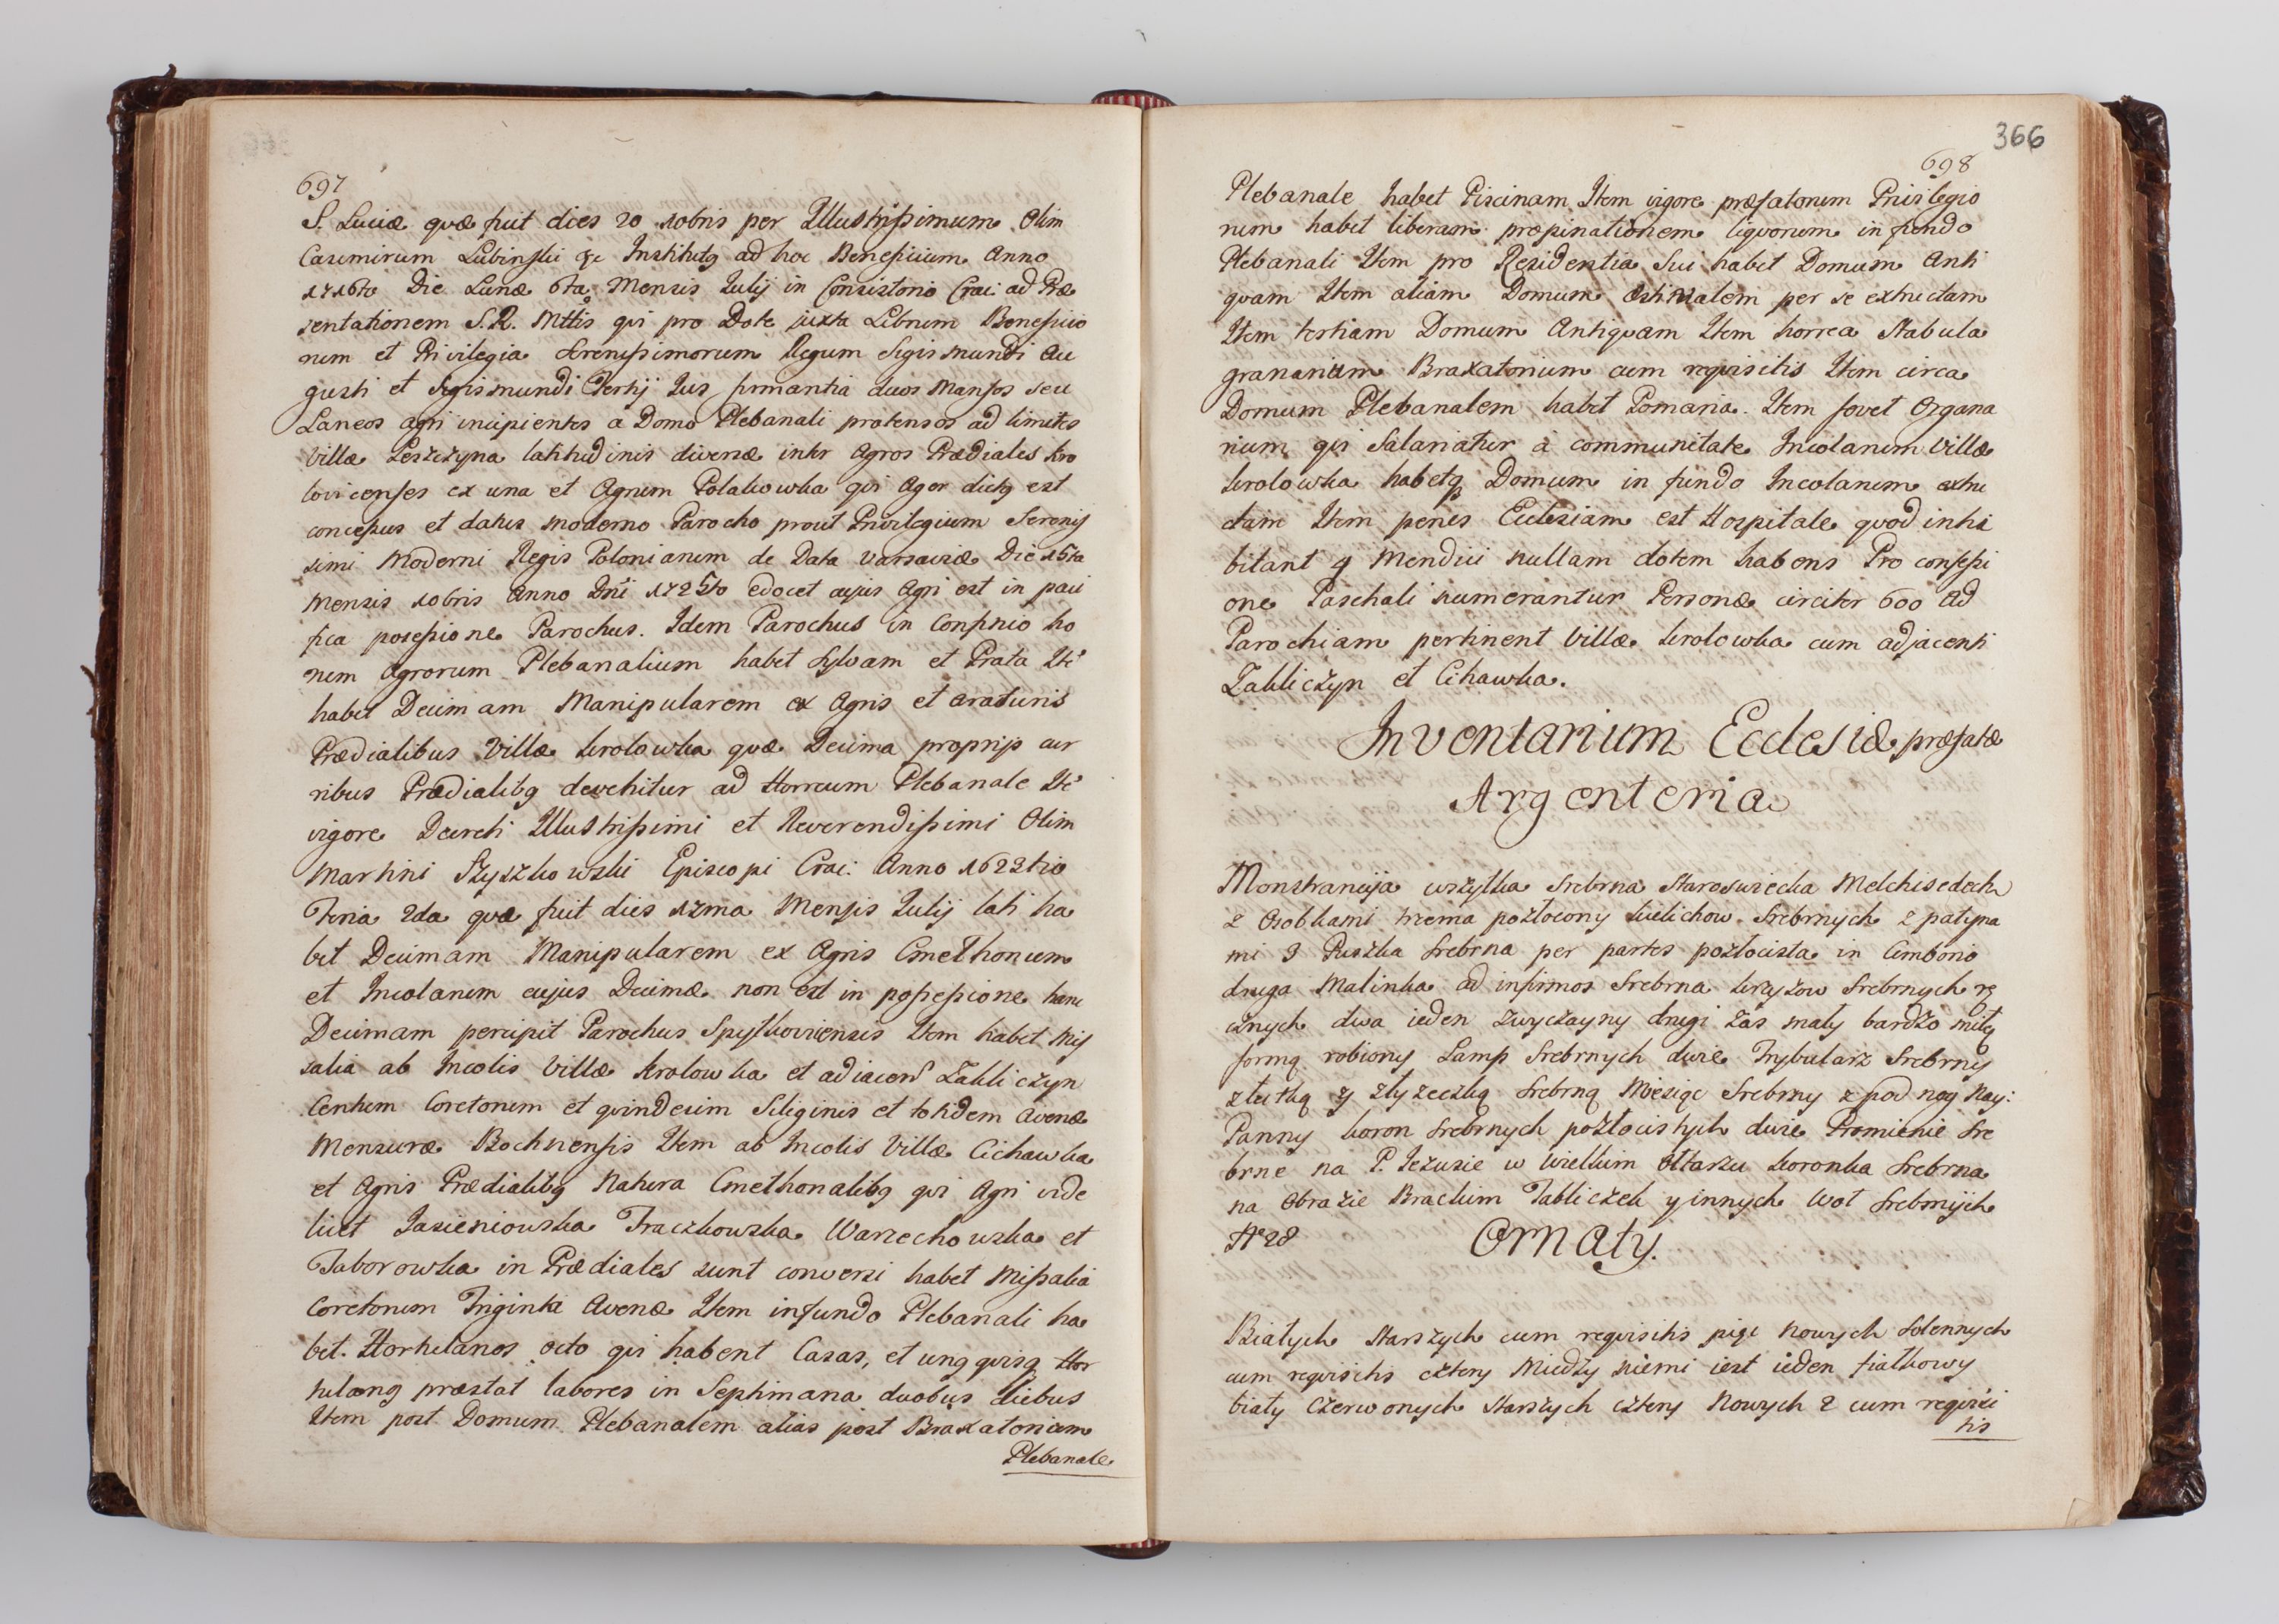 697
S. Luciæ quæ fuit dies 20 10bris per Illustrissimum Olim
Casimirum Lubinski &c Institutq ad hoc Beneficium Anno
1716to Die Lunæ 6ta Mensis Julij in Consistorio Crac: ad Præ
sentationem S. R. Mttis qvi pro Dote juxta Librum Beneficio
rum et Privilegia Serenissimorum Regum Sigismundi Au
gusti et Sigismundi Tertij Jus firmantia duos Mansos seu
Laneos agri incipientes a Domo Plebanali protensos ad limites
Villæ Leszczyna latitudinis diversæ inter Agros Prædiales Kro
lovicenses ex una et Agrum Polakowka qvi Ager dictq est
concessus et datus moderno Parocho prout Privilegium Serenis
simi Moderni Regis Poloniarum de Data Varsaviæ Die 16ta
Mensis 10bris Anno Dni 1725to edocet cujus Agri est in paci
fica posessione Parochus. Idem Parochus in Confinio ho
rum Agrorum Plebanalium habet Sylvam et Prata Ite
habet Decimam Manipularem ex Agris et araturis
Prædialibus Villæ Krolowka quæ Decima proprijs cur
ribus Prædialibq devehitur ad Horreum Plebanale Ite
vigore Decreti Illustrissimi et Reverendissimi Olim
Martini Szyszkowski Episcopi Crac: Anno 1623tio
Feria 2da quæ fuit dies 17ma Mensis Julij lati ha
bet Decimam Manipularem ex Agris Cmethonum
et Incolarum cujus Decimæ non est in possessione hanc
Decimam percipit Parochus Spytkoviensis Item habet Mis
salia ab Incolis Villæ Krolowka et adiacen Zakliczyn
Centum Coretorum et qvindecim Siliginis et totidem Avenæ
Mensuræ Bochnensis Item ab Incolis Villæ Cichawka
et Agris Prædialibq Natura Cmethonalibq qvi Agri vide
licet Jasieniowska Fraczkowska Warzechowska et
Taborowka in Prædiales sunt conversi habet Missalia
Coretorum Triginta Avenæ Item in fundo Plebanali ha
bet. Hortulanos octo qvi habent Casas, et unq qvisq Hor
tulanq præstat labores in Septimana duobus diebus
Item post Domum Plebanalem alias post Braxatorium
Plebanale
366
698
Plebanale habet Piscinam Item vigore præfatorum Privilegio
rum habet liberam propinationem liqvorum in fundo
Plebanali Item pro Residentia Sui habet Domum Anti
qvam Item aliam Domum Æstivalem per se extructam
Item tertiam Domum Antiqvam Item horrea Stabula
granarium Braxatorium cum reqvisitis Item circa
Domum Plebanalem habet Pomaria. Item fovet Organa
rium qvi Salariatur à communitate Incolarum Villæ
Krolowka habetq Domum in fundo Incolarum extru
ctam Item penes Ecclesiam est Hospitale qvod inha
bitant 9 Mendici nullam dotem habens Pro confessi
one Paschali numerantur Personæ circiter 600 Ad
Parochiam pertinent Villæ Krolowka cum adjacenti
Zakliczyn et Cichawka.
Inventarium Ecclesiæ præfatæ
Argenteria
Monstrancyja wszytka Srebrna Staroswiecka Melchisedech
z Osobkami trzema pozłocony kielichow Srebrnych z patyna
mi 3 Puszka Srebrna per partes pozłocista in Cimborio
druga Malinka ad infirmos Srebrna krzyżow Srebrnych rę
cznych dwa ieden zwyczayny drugi zas mały bardzo miłą
formą robiony Lamp Srebrnych dwie Trybularz Srebrny
z łutką y z łyzeczką Srebrną Miesiąc Srebrny z pod nog Nay:
Panny koron Srebrnych pozłocistych dwie Promienie Sre
brne na P. Jezusie w wielkim Ołtarzu koronka Srebrna
na Obrazie Brackim Tabliczek y innych Wot Srebrnych
No 28
Ornaty.
Białych Starszych cum reqvisitis pięc Nowych Solennych
cum reqvisitis cztery Między niemi iest ieden fiałkowy
biały Czerwonych Starszych cztery Nowych 2 cum reqvisi
tis